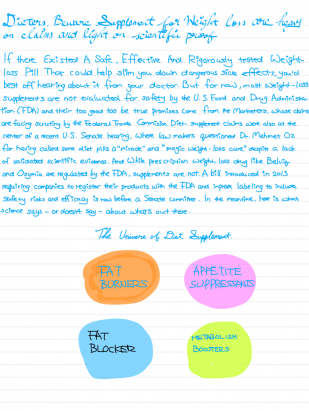 Dieters, Beware: Supplement for Weight loss are heavy
on claims and light on scientific proof
If there Existed A Safe, Effective And Rigorously tested Weight-
loss Pill That could help slim you down dangerous side effects, you'd
best off hearing about it from your doctor. But for now, most weight-loss
supplements are not evaluated for safety by the U.S. Food and Drug Administra-
tion (FDA) and their too good to be true promises come from the Marketers, whose claims
are facing scrutiny by the Federal Trade Commission. Diet-supplement claims were also at the
center of a recent U.S. Senate hearing, where law makers questioned Dr. Mehmet Oz
for having called some diet pills a "miracle" and "magic weight-loss cure" despite a lack
of validated scientific evidence. And While prescription weight loss drug like Belviq
and Qsymia are regulated by the FDA, supplements are not. A bill introduced in 2013
requiring companies to register their products with the FDA and improve labeling to include
safety risks and efficacy is now before a Senate committee. In the meantime, here is what
science says - or doesn't say - about what's out there.
The Universe of Diet Supplement.
FAT
BURNERS
APPETITE
SUPPRESSANTS
FAT
BLOCKER
METABOLISM
BOOSTERS